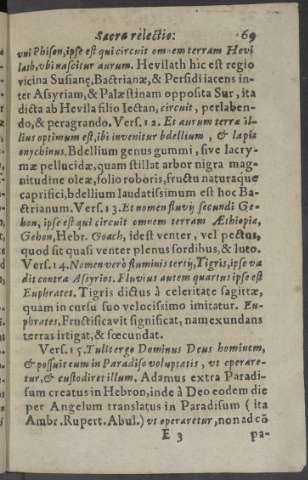 Sacra relectio: 69
vni Phison, ipse est qui circuit omnem terram Hevi
lath, vbi nascitur aurum. Hevilath hic est regio
vicina Susianę, Bactrianæ, & Persidi iacens in-
ter Assyriam, & Palæstinam opposita Sur, ita
dicta ab Hevila filio Iectan, circuit, perlaben-
do, & peragrando. Vers. 12. Et aurum terræ il-
lius optimum est, ibi invenitur bdellium, & lapis
onychinus. Bdellium genus gummi, sive lacry-
mæ pellucidæ, quam stillat arbor nigra mag-
nitudine oleæ, folio roboris, fructu naturaque
caprifici, bdellium laudatissimum est hoc Ba-
ctrianum. Vers. 13. Et nomen fluvij secundi Ge-
hon, ipse est qui circuit omnem terram Æthiopia,
Gehon, Hebr. Goach, idest venter, vel pectus,
quod sit quasi venter plenus sordibus, & luto.
Vers. 14. Nomen verò fluminis tertij, Tigris, ipse va
dit contra Assyrios. Fluvius autem quartus ipse est
Euphrates. Tigris dictus à celeritate sagittæ,
quam in cursu suo velocissimo imitatur. Eu-
phrates, Fructificavit significat, nam exundans
terras irrigat, & fœcundat.
Vers. 15. Tulit ergo Dominus Deus hominem,
& posuit eum in Paradiso voluptatis, vt operare-
tur, & custodiret illum. Adamus extra Paradi-
sum creatus in Hebron, inde à Deo eodem die
per Angelum translatus in Paradisum (ita
Ambr. Rupert. Abul.) vt operaretur, non ad cõ
E 3 pa-